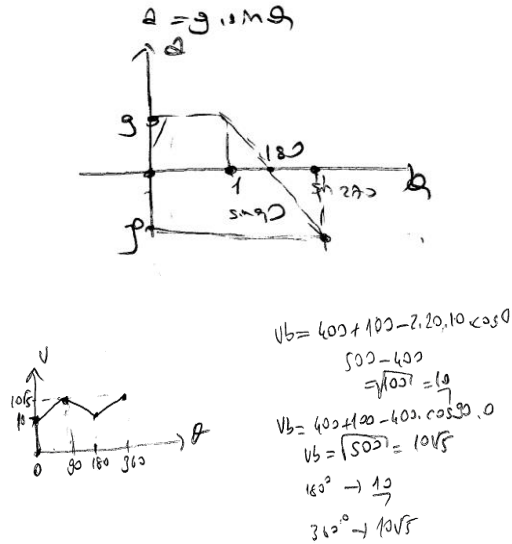 a = g . sin θ
a
g
180
1
sin 270
θ
sin 90
g
V
10√5
10
0 90 180 360 θ
Vb = 400 + 100 - 2.20.10.cos0
500 - 400
= √100 = 10
Vb = 400 + 100 - 400. cos90.0
Vb = √500 = 10√5
180° → 10
360° → 10√5